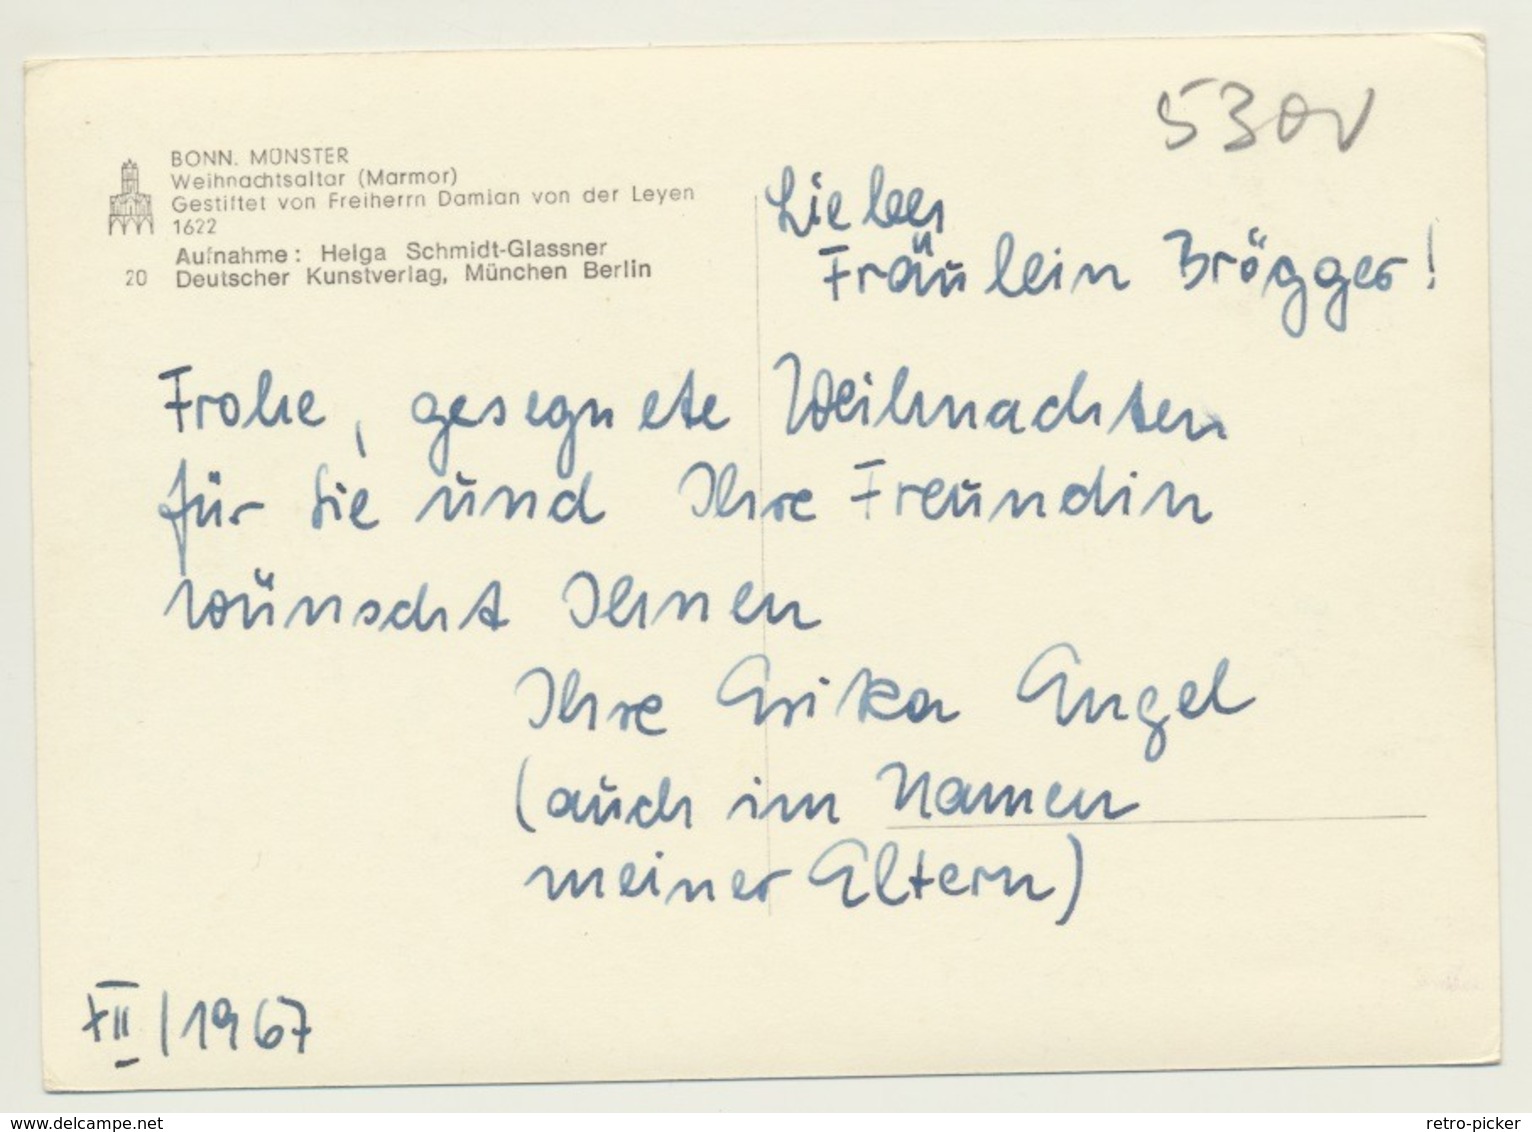 530v
BONN. MÜNSTER
Weihnachtsaltar (Marmor)
Gestiftet von Freiherrn Damian von der Leyen
1622
Aufnahme: Helga Schmidt-Glassner
20 Deutscher Kunstverlag, München Berlin
Liebes
Fräulein Brögger!
Frohe, gesegnete Weihnachten
für Sie und Ihre Freundin
wünscht Ihnen
Ihre Erika Engel
(auch im Namen
meiner Eltern)
XII/1967
www.delcampe.net
retro-picker